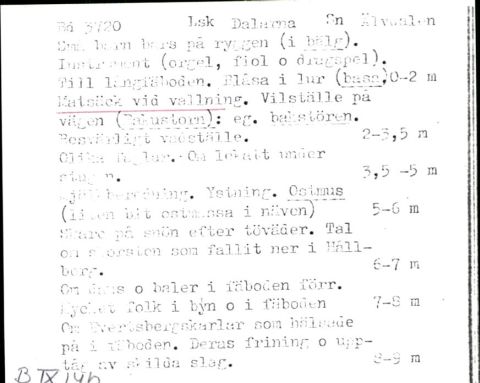 Bd 3720 Lsk Dalarna Sn Älvdalen
Små barn bars på ryggen (i bälg).
Instrument (orgel, fiol o dragspel).
Till långfäboden. Blåsa i lur (bass) 0-2 m
Matsäck vid vallning. Vilställe på
vägen ( ): eg. bakstören.
Besvärligt vadställe. 2-3,5 m
Olika fåglar. Om lekatt under
stugan. 3,5 -5 m
Ystning. Ostmus
(liten bit ostmassa i näven) 5-6 m
Skare på snön efter töväder. Tal
om skorsten som fallit ner i Håll-
berg. 6-7 m
Om dans o baler i fäboden förr.
Mycket folk i byn o i fäboden 7-8 m
Om Evertsbergskarlar som hälsade
på i fäboden. Deras frining o upp-
tåg av skilda slag. 8-9 m
B IX 14b